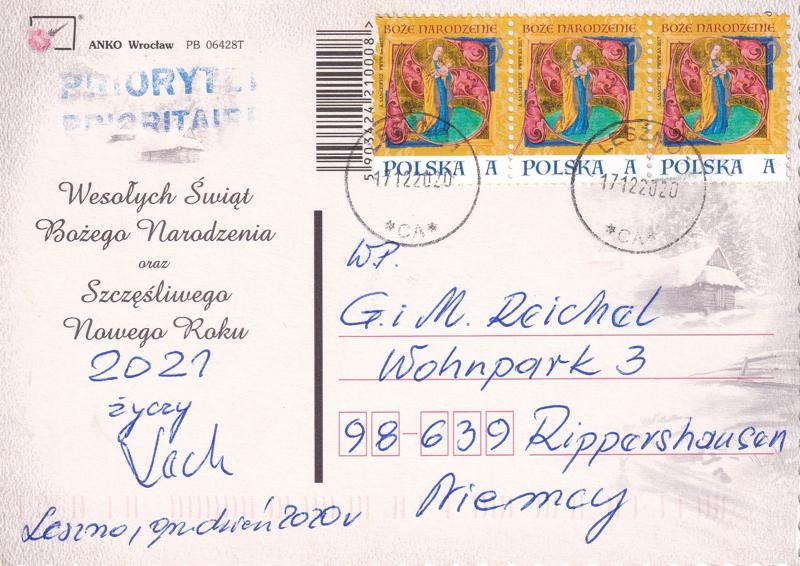 ANKO Wrocław PB 06428T
PRIORYTET
PRIORITAIRE
5903424210008>
BOŻE NARODZENIE
POLSKA A
BOŻE NARODZENIE
POLSKA A
BOŻE NARODZENIE
POLSKA A
LESZNO
17122020
*CA*
LESZNO
17122020
*CA*
Wesołych Świąt
Bożego Narodzenia
oraz
Szczęśliwego
Nowego Roku
2021
życzy
Lech
Leszno, grudzień 2020 r
W.P.
G. i M. Reichel
Wohnpark 3
98-639 Rippershausen
Niemcy